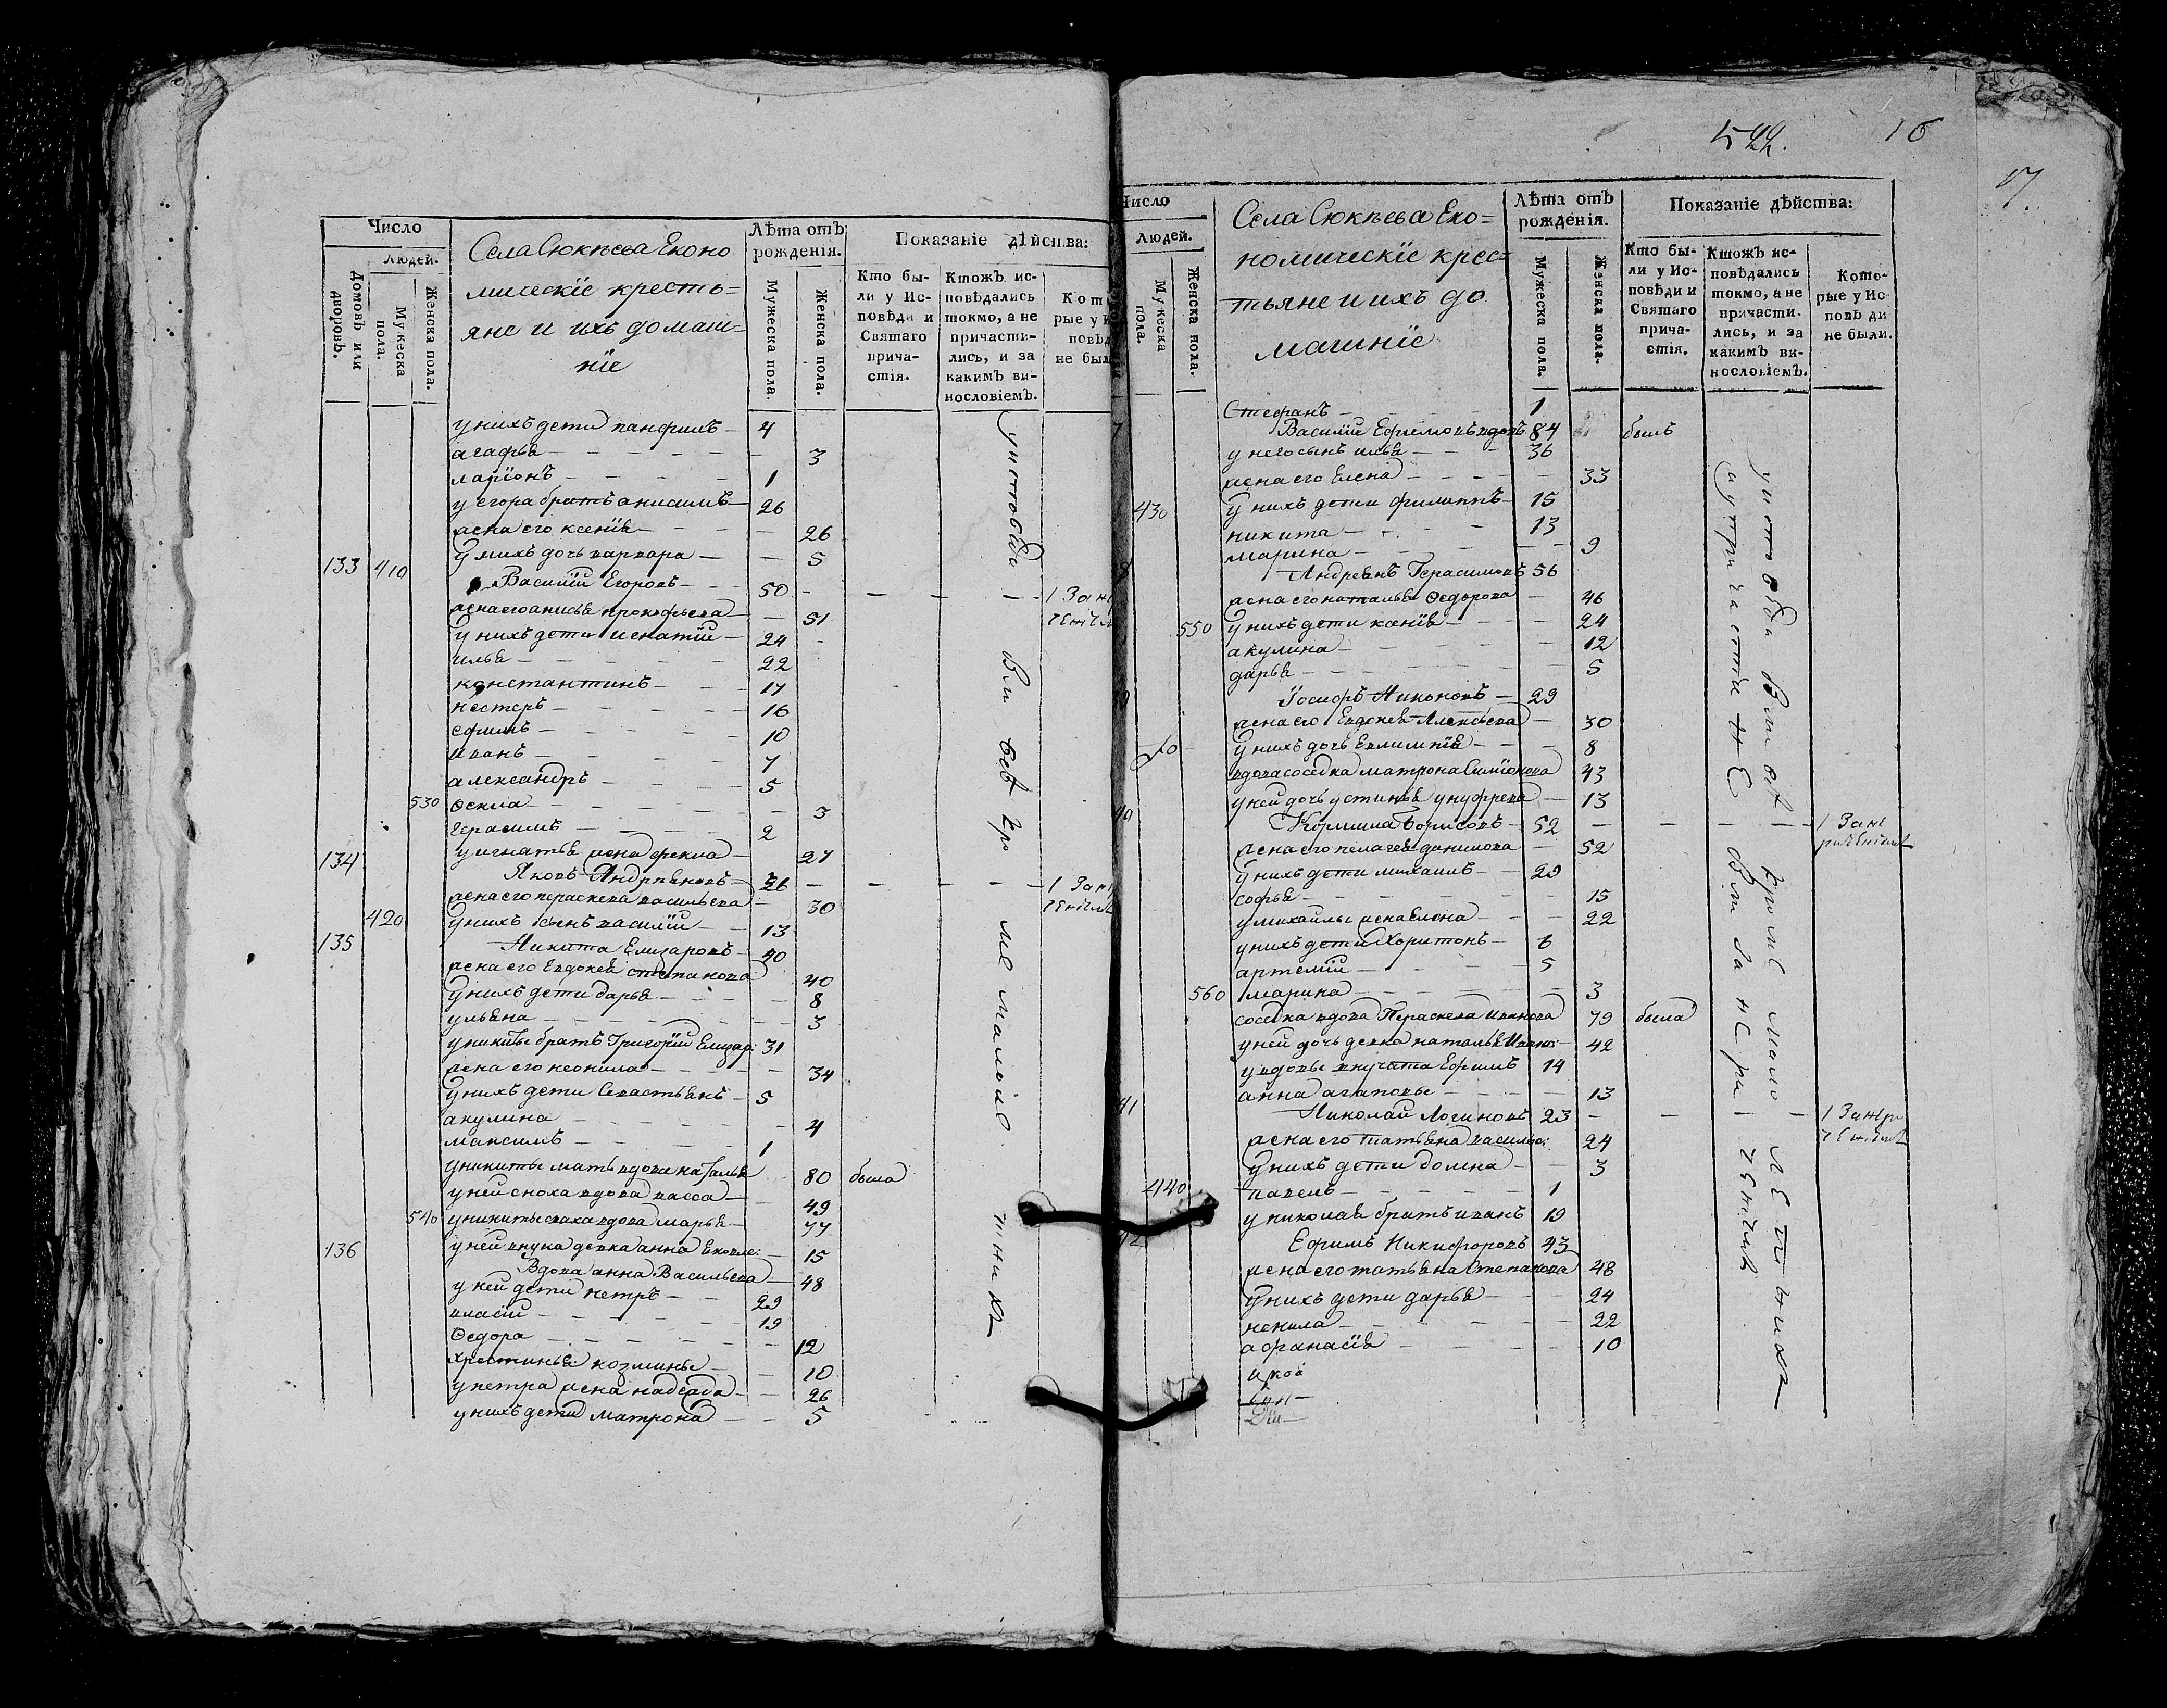 Число
Людей.
Домовъ или дворовъ.
Мужеска пола.
Женска пола.
Села Сюкѣева Еконо
мическіе кресть=
яне и ихъ домаш=
ніе
Лѣта отъ рожденія.
Мужеска пола
Женска пола.
Показаніе дѣйства:
Кто бы-
ли у Ис-
повѣди и
Святаго
прича-
стія.
Ктожъ ис-
повѣдались
токмо, а не
причасти-
лись, и за
какимъ ви-
нословіемъ.
Кот
рые у И
повѣд
не был
у нихъ дети панфилъ 4
агафья 3
ларіонъ 1
у егора братъ анисимъ 26
жена его ксенія 26
у нихъ дочь варвара 5
133 410 Василій Егоровъ 50 1 За
жена его анисья прокофьева 51
у нихъ дети игнатій 24
илья 22
константинъ 17
нестеръ 16
ефимъ 10
иванъ 7
александръ 5
530 фекла 3
герасимъ 2
у игнатья жена фекла 27
134 Яковъ Андреяновъ 36 1 За
жена его параскева васильева 30
420 у нихъ сынъ василій 13
135 Никита Елизаровъ 40
жена его Евдокея степанова 40
у нихъ дети дарья 8
ульяна 3
у никиты братъ Григорій Елизар: 31
жена его неонила 34
у нихъ дети Севастьянъ 5
акулина 4
максимъ 1
у никиты мать вдова наталья 80 была
у ней сноха вдова васса 49
540 у никиты сваха вдова марья 77
у ней внука девка анна Яковле: 15
136 Вдова анна Васильева 48
у ней дети петръ 29
власій 19
федора 12
хрестинья козмины 10
у петра жена надежда 26
у нихъ дети матрона 5
у исповѣди были всѣ кроме малолѣтнихъ
522. 16
17.
Число
Людей.
Мужеска пола.
Женска пола.
Села Сюкѣева Еко=
номическіе крес=
тьяне и ихъ до
машніе
Лѣта отъ рожденія.
Мужеска пола.
Женска пола.
Показаніе дѣйства:
Кто бы-
ли у Ис-
повѣди и
Святаго
прича-
стія.
Ктожъ ис-
повѣдались
токмо, а не
причасти-
лись, и за
какимъ ви-
нословіемъ.
Кото-
рые у Ис
повѣди
не были.
Стефанъ 1
Василій Ефремовъ вдовъ 84 былъ
у него сынъ илья 36
жена его Елена 33
430 у нихъ дети филиппъ 15
никита 13
марина 9
Андреянъ Герасимовъ 56
жена его наталья Федорова 46
550 у нихъ дети ксенія 24
акулина 12
дарья 5
Іосифъ Никоновъ 29
жена его Евдокея Алексѣева 30
у нихъ дочь Евлампія 8
вдова соседка матрона Симіонова 43
у ней дочь устинья ануфрева 13
Борисовъ 52 1 За не
жена его пелагея данилова 52
у нихъ дети михаилъ 29
софья 15
у михаилы жена Елена 22
у нихъ дети Харитонъ 6
артемій 5
560 марина 3
соседка вдова Параскева иванова 79 была
у ней дочь девка наталья Ивано: 42
у вдовы внучата Ефимъ 14
анна агаповы 13
Николай Логиновъ 23 1 За нера
жена его татьяна василье: 24
у нихъ дети домна 3
440 павелъ 1
у николая братъ иванъ 19
Ефимъ Никифоровъ 43
жена его татьяна Степанова 48
у нихъ дети дарья 24
ненила 22
афанасія 10
у исповѣди были всѣ кроме малолѣтнихъ
а у причастія не были за нерачениемъ